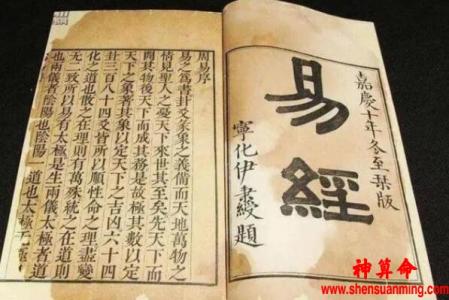 嘉慶十年冬至栞版
易經
寧化伊秉綬題
周易序
易之為書卦爻彖象之義備而天地萬物之
情見聖人之憂天下來世其至矣先天下而
開其物後天下而成其務是故極其數以定
天下之象著其象以定天下之吉凶六十四
卦三百八十四爻皆所以順性命之理盡變
化之道也散之在理則有萬殊統之在道則
无二致所以易有太極是生兩儀太極者道
也兩儀者陰陽也陰陽一道也太極无極
神算命
www.shensuanming.com